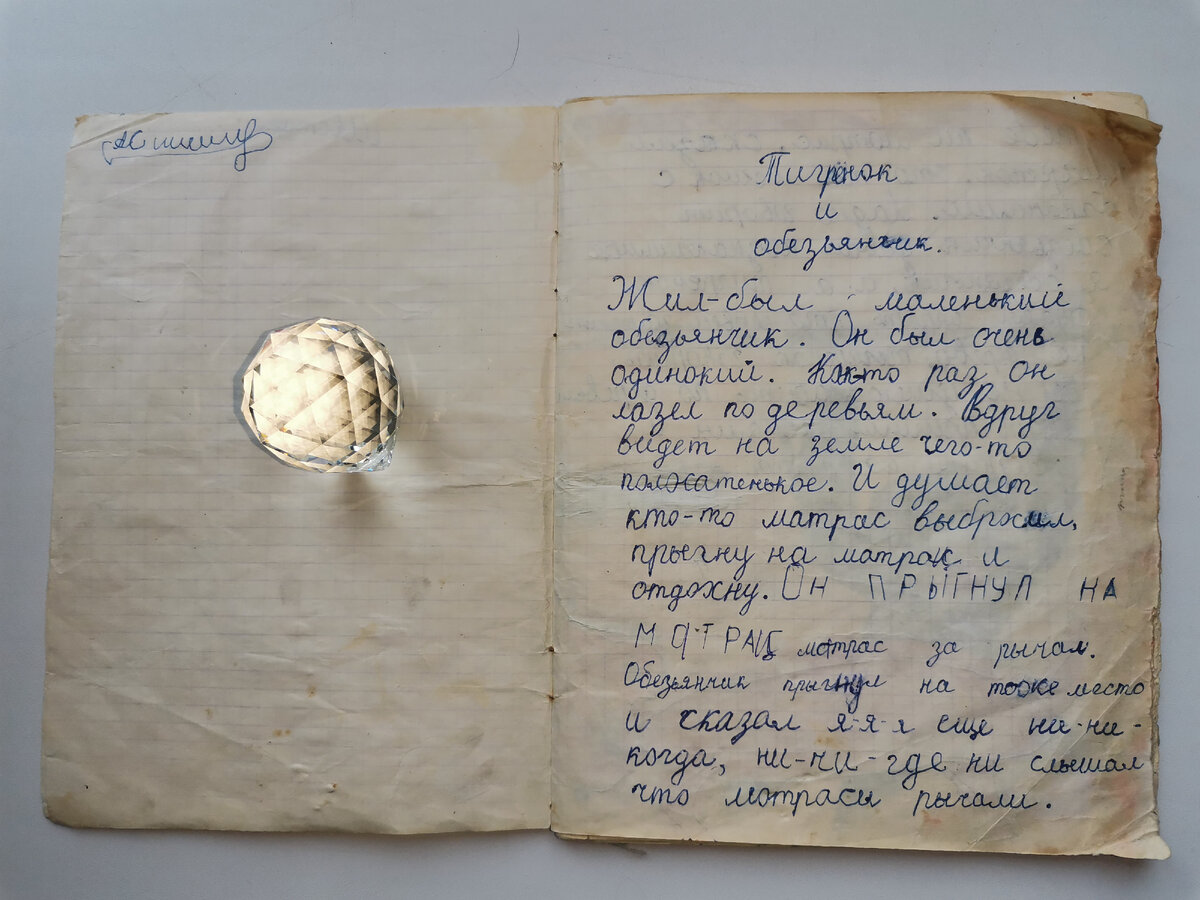 Тигрёнок
и
обезьянчик.
Жил-был маленький
обезьянчик. Он был очень
одинокий. Как-то раз он
лазел по деревьям. Вдруг
видет на земле чего-то
полосатенькое. И думает
кто-то матрас выбросил,
прыгну на матрас и
отдохну. Он ПРЫГНУЛ НА
МАТРАЦ матрас за рычал.
Обезьянчик прыгнул на тоже место
и сказал я-я-я еще ни-ни-
когда, ни-ни-где ни слышал
что матрасы рычали.